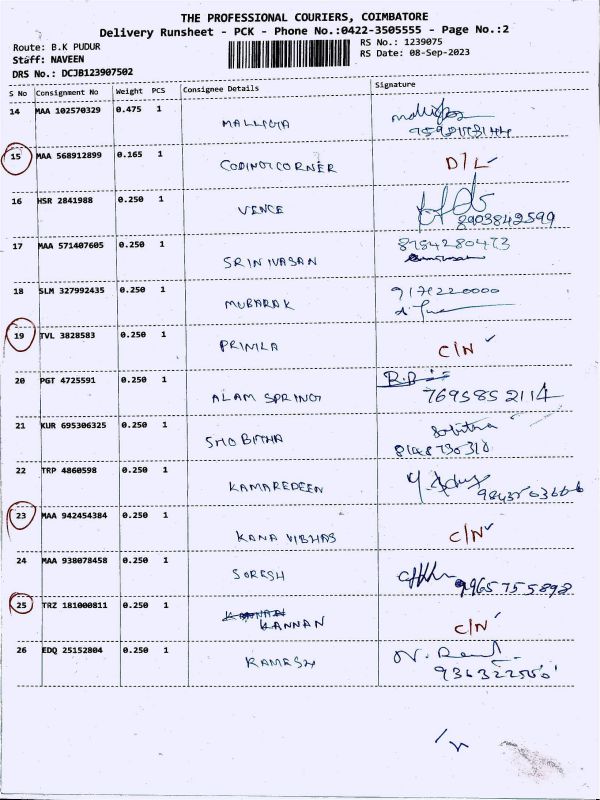 THE PROFESSIONAL COURIERS, COIMBATORE
Delivery Runsheet - PCK - Phone No.:0422-3505555 - Page No.:2
Route: B.K PUDUR
RS No.: 1239075
Staff: NAVEEN
RS Date: 08-Sep-2023
DRS No.: DCJB123907502
S No Consignment No Weight PCS Consignee Details Signature
14 MAA 102570329 0.475 1
MALLIGA
15 MAA 568912899 0.165 1
CODINGTCORNER D/L
16 HSR 2841988 0.250 1
VENCE
8903842599
17 MAA 571407605 0.250 1
8754280473
SRINIVASAN
18 SLM 327992435 0.250 1
9171220000
MUBARAK
19 TVL 3828583 0.250 1
PRINILA C/N
20 PGT 4725591 0.250 1
ALAM SPRING 7695852114
21 KUR 695306325 0.250 1
SHOBITHA
22 TRP 4860598 0.250 1
KAMAREDEEN
23 MAA 942454384 0.250 1
KANA VIBHAS C/N
24 MAA 938078458 0.250 1
SORESH 9965755898
25 TRZ 181000811 0.250 1
KANNAN C/N
26 EDQ 25152804 0.250 1
RAMESH